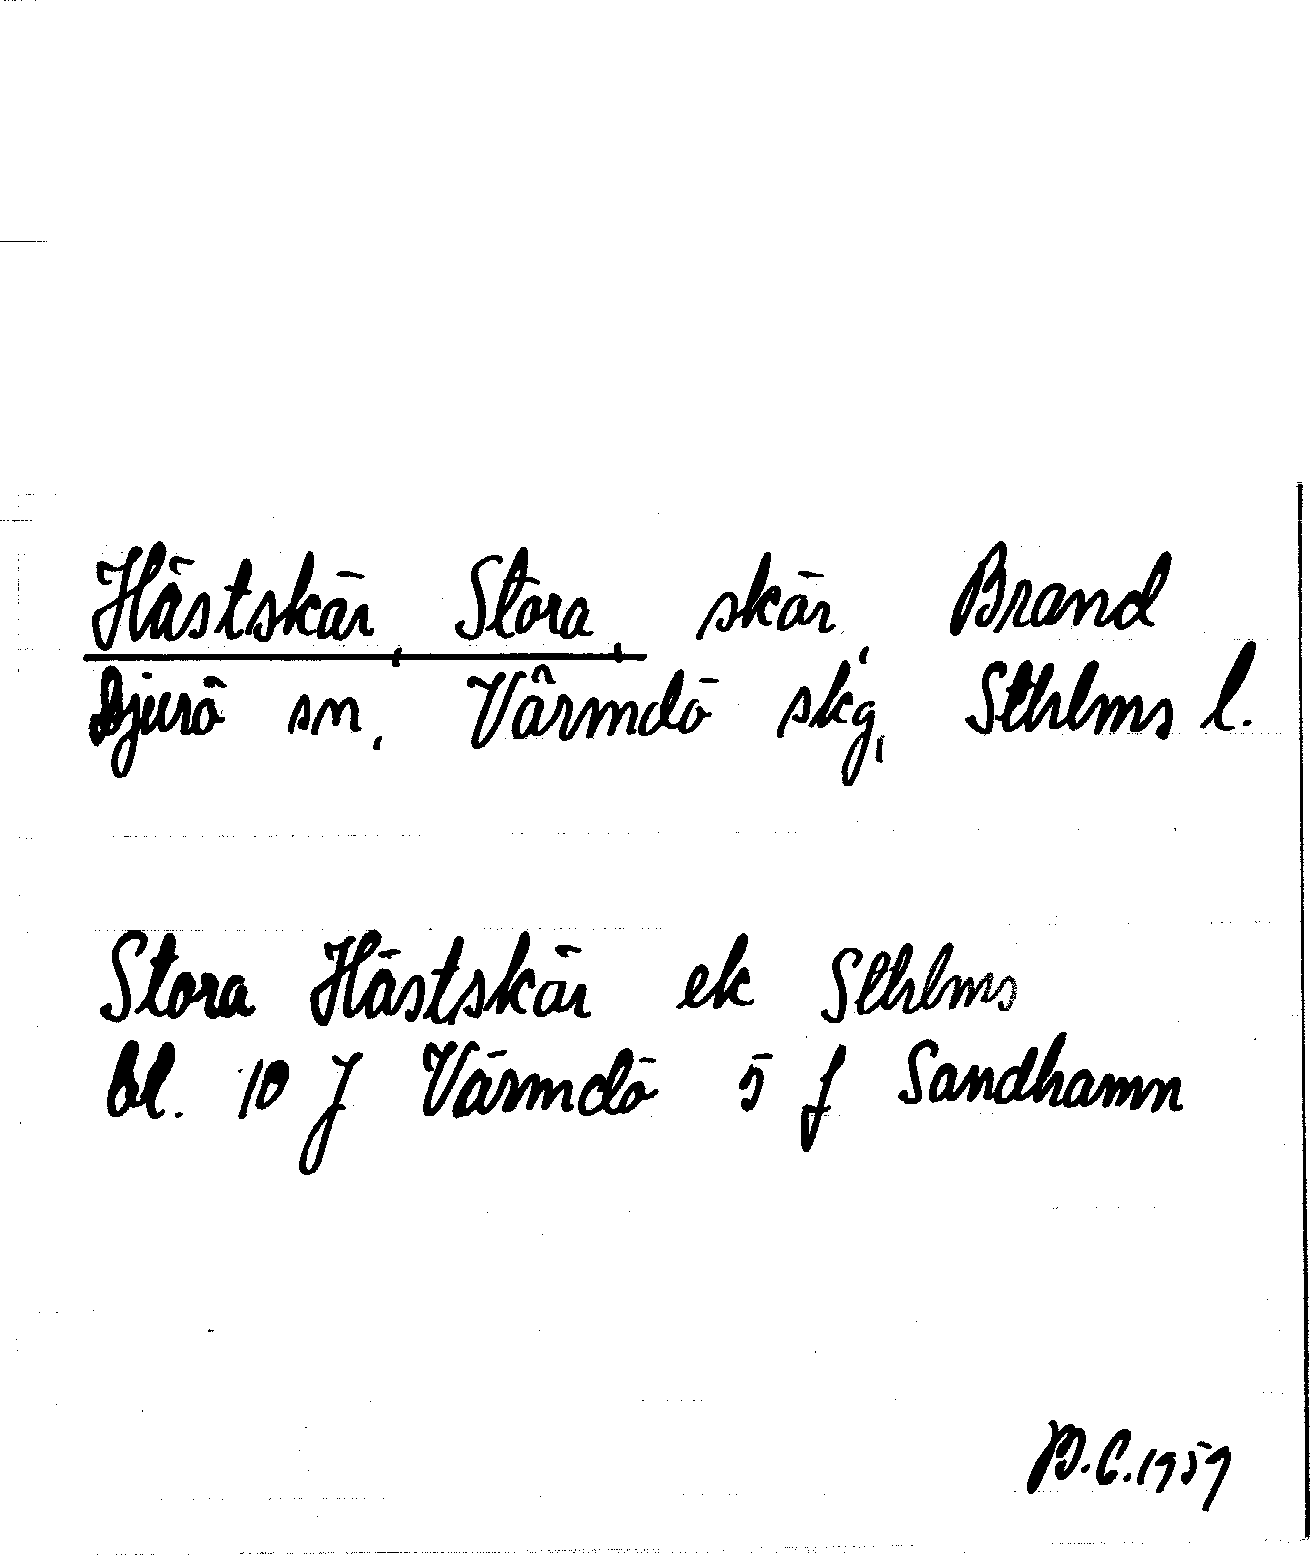 Hästskär, Stora, skär, Brand
Djurö sn, Värmdö skg, Sthlms l.
Stora Hästskär ek Sthlms
bl. 10 J Värmdö 5 f Sandhamn
B.C.1959